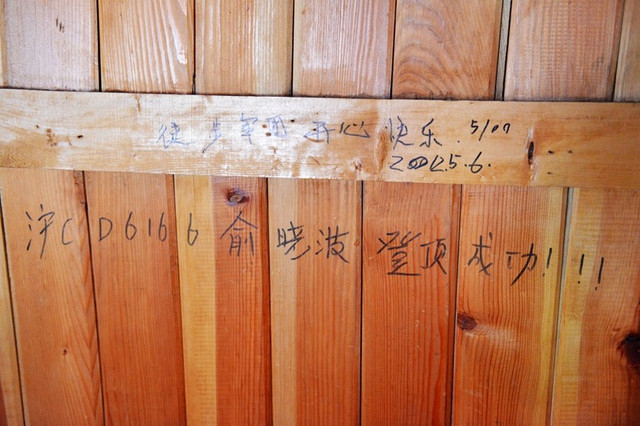 徒步军团 开心 快乐. 5100
2012.5.6.
沪CD6166 俞晓波 登顶成功!!!